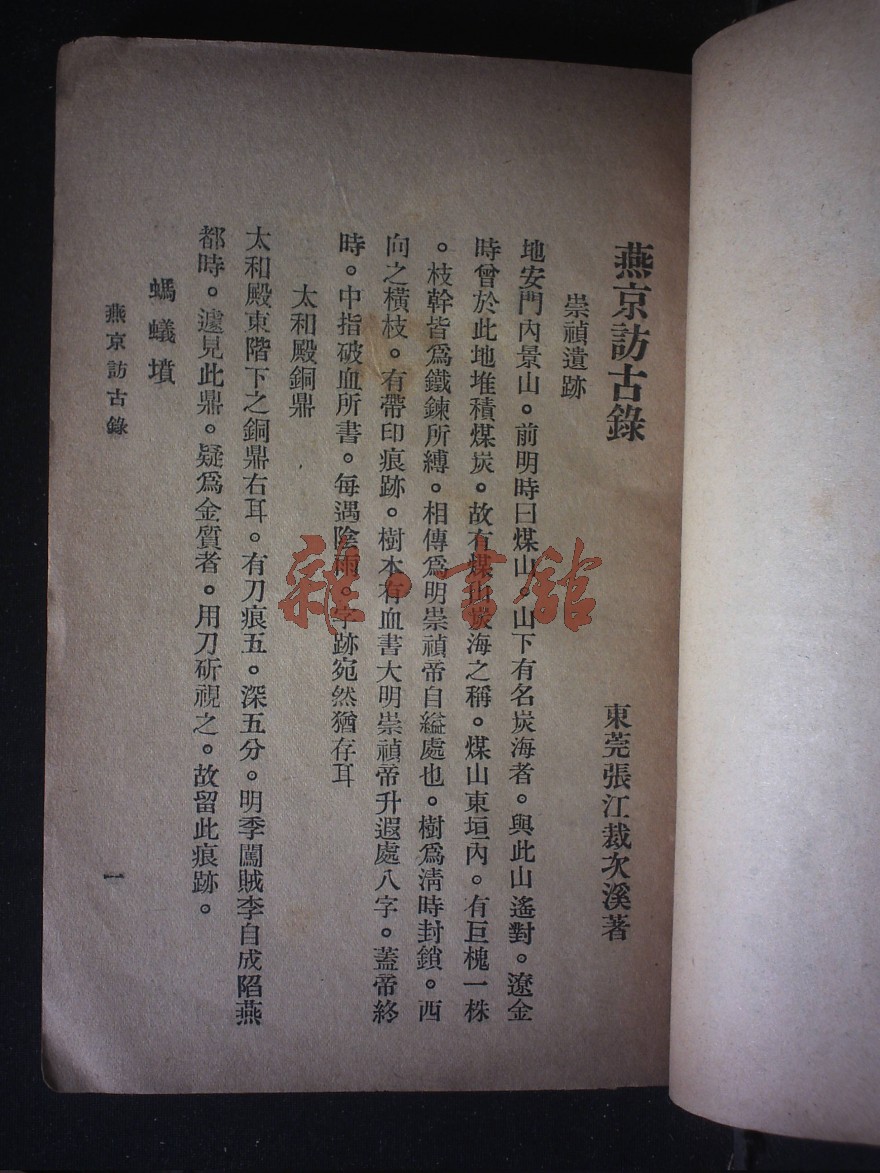 燕京訪古錄
東莞張江裁次溪著
崇禎遺跡
地安門內景山。前明時曰煤山。山下有名炭海者。與此山遙對。遼金
時曾於此地堆積煤炭。故有煤山炭海之稱。煤山東垣內。有巨槐一株
。枝幹皆爲鐵鍊所縛。相傳爲明崇禎帝自縊處也。樹爲淸時封鎖。西
向之橫枝。有帶印痕跡。樹本有血書大明崇禎帝升遐處八字。蓋帝終
時。中指破血所書。每遇陰雨。字跡宛然猶存耳
太和殿銅鼎
太和殿東階下之銅鼎右耳。有刀痕五。深五分。明季闖賊李自成陷燕
都時。遽見此鼎。疑爲金質者。用刀斫視之。故留此痕跡。
螞蟻墳
燕京訪古錄
一
雜·書館